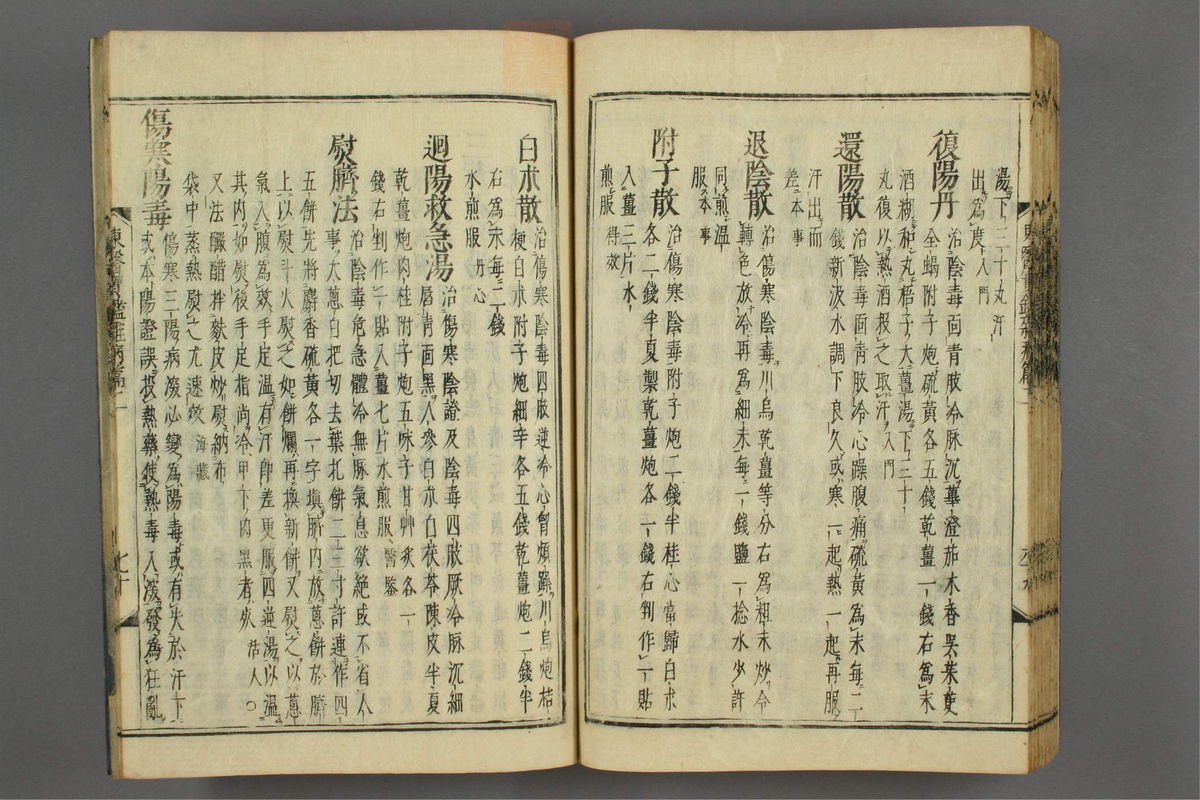 湯下三十丸汗
出爲度入門
復陽丹治陰毒面青肢冷脉沉蓽澄茄木香吳茱萸
全蝎附子炮硫黃各五錢乾薑一錢右爲末
酒糊和丸梧子大薑湯下三十
丸復以熱酒投之取汗入門
還陽散治陰毒面靑肢冷心躁腹痛硫黃爲末每二
錢新汲水調下良久或寒一起熱一起再服
汗出而
差本事
退陰散治傷寒陰毒川烏乾薑等分右爲粗末炒令
轉色放冷再爲細末每一錢鹽一捻水少許
同煎溫
服本事
附子散治傷寒陰毒附子炮二錢半桂心當歸白朮
各二錢半夏製乾薑炮各一錢右剉作一貼
入薑三片水
煎服得效
白朮散治傷寒陰毒四肢逆冷心胷煩躁川烏炮桔
梗白朮附子炮細辛各五錢乾薑炮二錢半
右爲末每二錢
水煎服丹心
迴陽救急湯治傷寒陰證及陰毒四肢厥冷脉沉細
唇靑面黑人參白朮白茯苓陳皮半夏
乾薑炮肉桂附子炮五味子甘艸灸各一
錢右剉作一貼入薑七片水煎服醫鑒
熨臍法治陰毒危急體冷無脉氣息欲絶或不省人
事大蔥白把切去葉扎餠二三寸許連作四
五餠先將麝香硫黃各一字塡臍內放蔥餠於臍
上以熨斗火熨之如餠爛再換新餠又熨之以蔥
氣入腹爲效手足溫有汗卽差更服四逆湯以溫
其內如熨後手足指尙冷甲下肉黑者死活人○
又法釅醋拌麩皮炒熨納布
袋中蒸熱熨之尤速效海藏
傷寒陽毒傷寒三陽病深必變爲陽毒或有失於汗下
或本陽證誤投熱藥使熱毒入深發爲狂亂
東醫寶鑑雜病篇二